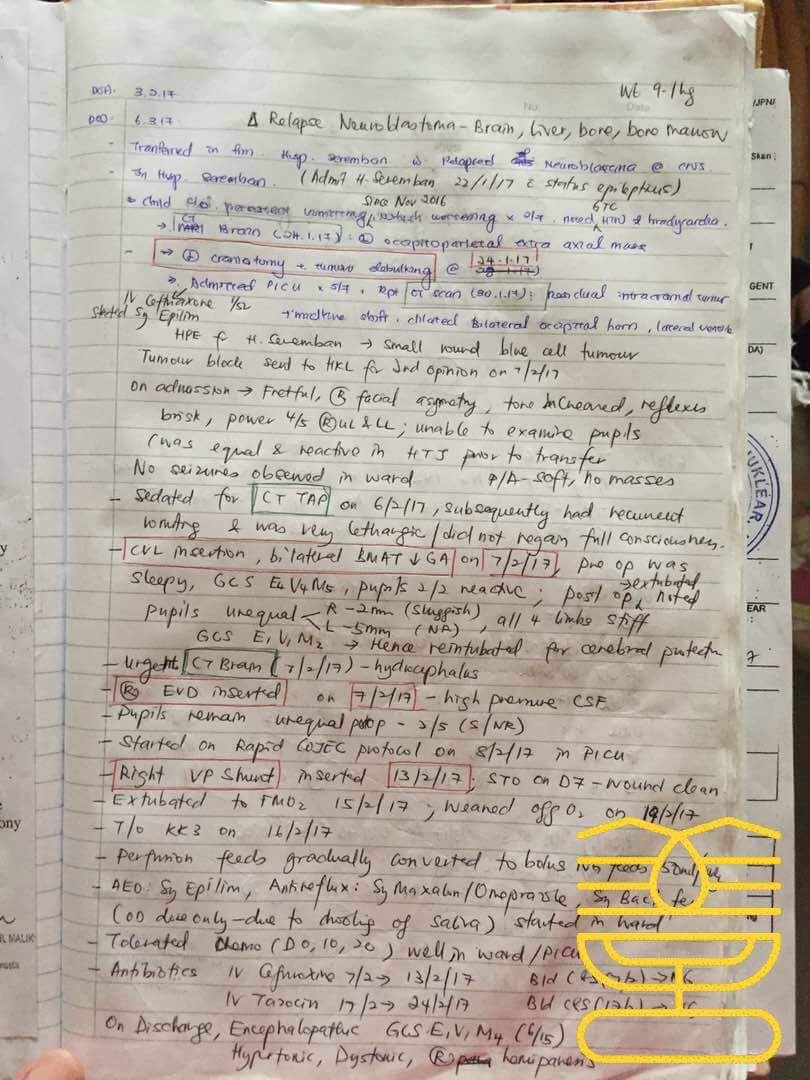 Wt 9.1kg
DOA: 3.2.17
DOD: 6.3.17
Δ Relapse Neuroblastoma - Brain, Liver, bone, bone marrow
- Transferred in from Hosp. Seremban Relapsed Neuroblastoma @ CNS
- In Hosp. Seremban. (Admit H. Seremban 22/1/17 c̄ status epilepticus)
since Nov 2016
child c/o persistent vomiting, which worsening x HTN & bradycardia.
GTC
→ CT Brain (24.1.17): (L) occipitoparietal extra axial mass
- → (L) craniotomy + tumour debulking @ 24.1.17
Admitted PICU x 5/7, Rpt CT scan (30.1.17): residual intracranial tumour
IV Ceftriaxone 1/52
started Sy Epilim → midline shift, dilated Bilateral occipital horn, lateral ventricle
HPE f H. Seremban → small round blue cell tumour
Tumour block sent to HKL for 2nd opinion on 7/2/17
On admission → Fretful, (R) facial asymetry, tone increased, reflexes
brisk, power 4/5 (R) UL & LL; unable to examine pupils
(was equal & reactive in HTJ prior to transfer
No seizures observed in ward P/A - soft, no masses
- Sedated for CT TAP on 6/2/17, subsequently had recurrent
vomiting & was very lethargic / did not regain full consciousness.
- CVL insertion, bilateral BMAT ↓ GA on 7/2/17, pre op was
sleepy, GCS E4 V4 M5, pupils 2/2 reactive; post op → extubated, noted
pupils unequal R - 2mm (sluggish)
L - 5mm (NR), all 4 limbs stiff
GCS E1 V1 M2 → Hence reintubated for cerebral protection
- Urgent CT Brain (7/2/17) - hydrocephalus
- (R) EVD inserted on 7/2/17 - high pressure CSF
- Pupils remain unequal postop - 2/5 (S/NR)
- Started on Rapid COJEC protocol on 8/2/17 in PICU
- Right VP Shunt inserted 13/2/17; STO on D7 - wound clean
- Extubated to FMO2 15/2/17; weaned off O2 on 19/2/17
- T/O KK3 on 16/2/17
- Perfusion feeds gradually converted to bolus NG feeds
- AED: Sy Epilim, Antireflux: Sy Maxalon/Omeprazole, Sy Baclofen
(OD dose only - due to drooling of saliva) started in ward
- Tolerated Chemo (D0, 10, 20) well in ward / PICU
- Antibiotics IV Cefuroxime 7/2 → 13/2/17 Bld → NG
IV Tazocin 17/2 → 24/2/17 Bld C&S (17/2) → NG
On Discharge, Encephalopathic GCS E1 V1 M4 (6/15)
Hypertonic, Dystonic, (R) hemiparesis
/JPN/
GENT
DA)
UKLEAR
EAR
ony
R. MALIK